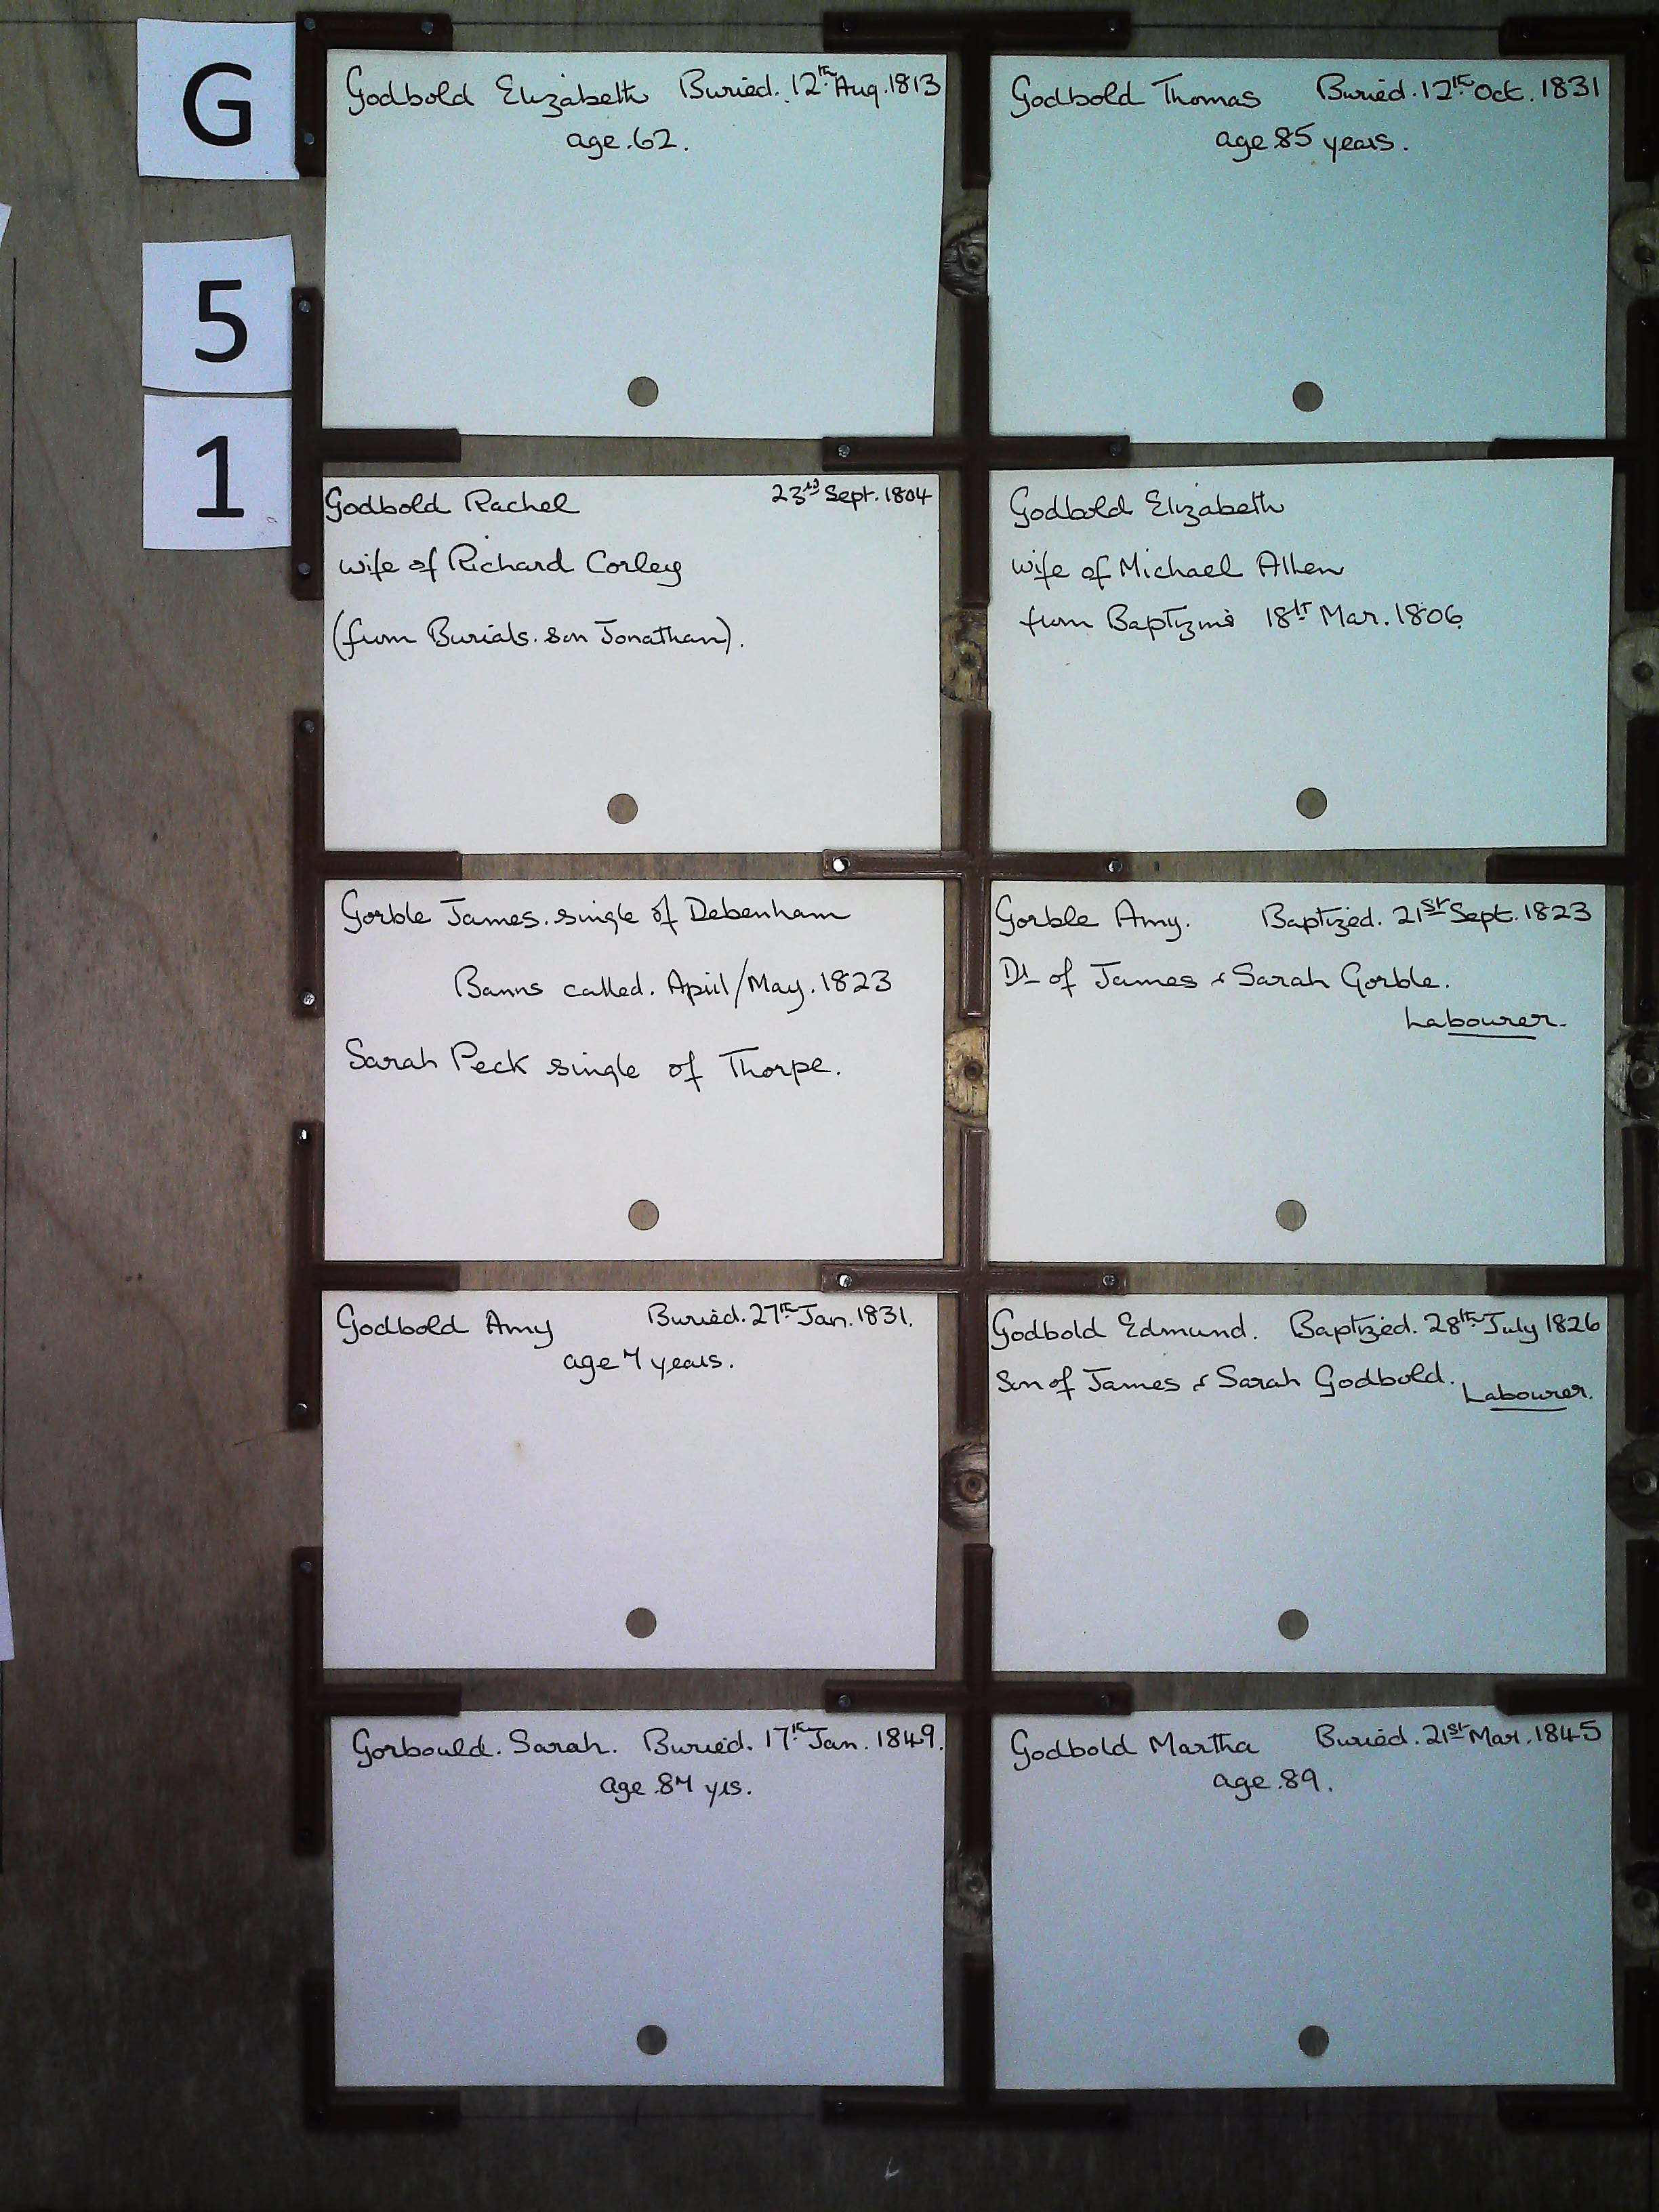 G
5
1
Godbold Elizabeth Buried. 12th Aug. 1813
age. 62.
Godbold Thomas Buried. 12th Oct. 1831
age 85 years.
Godbold Rachel 23rd Sept. 1804
wife of Richard Corley
(from Burials. son Jonathan).
Godbold Elizabeth
wife of Michael Allen
from Baptizms 18th Mar. 1806
Gorble James. single of Debenham
Banns called. April/May. 1823
Sarah Peck single of Thorpe.
Gorble Amy. Baptized. 21st Sept. 1823
Dt of James & Sarah Gorble.
Labourer.
Godbold Amy Buried. 27th Jan. 1831.
age 7 years.
Godbold Edmund. Baptized. 28th July 1826
Son of James & Sarah Godbold.
Labourer.
Gorbould. Sarah. Buried. 17th Jan. 1849.
age. 87 yrs.
Godbold Martha Buried. 21st Mar. 1845
age. 89.